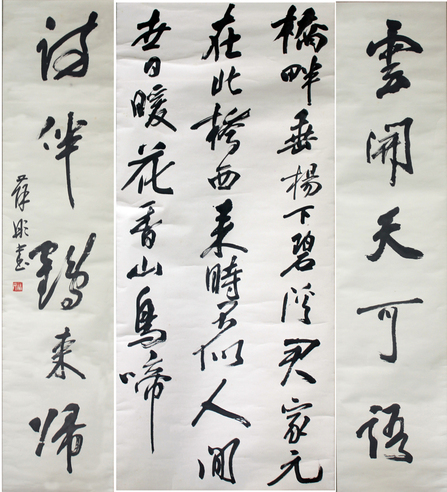 雲開天可語
橋畔垂楊下碧溪君家元
在北橋西来時不似人間
世日暖花香山鳥啼
詩伴鶴来歸
薛彤書